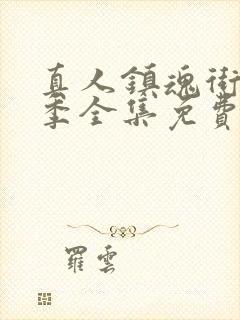 真人鎮魂街
季全集免費
羅雲